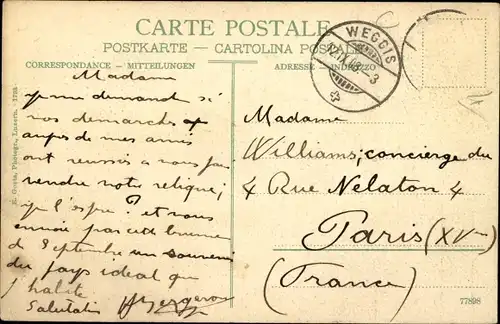 CARTE POSTALE
POSTKARTE - CARTOLINA POSTALE
CORRESPONDANCE - MITTEILUNGEN
ADRESSE - INDIRIZZO
WEGGIS
Madame
je me demande si
vos demarches et
de mes amis
ont reussi a vous faire
rendre votre relique;
je l'espere? et vous
envoie par cette
de Septembre un souvenir
du pays ideal que
j'habite
Salutations
Madame
Williams; concierge du
4 Rue Nelaton 4
Paris (XVme)
(France)
77898